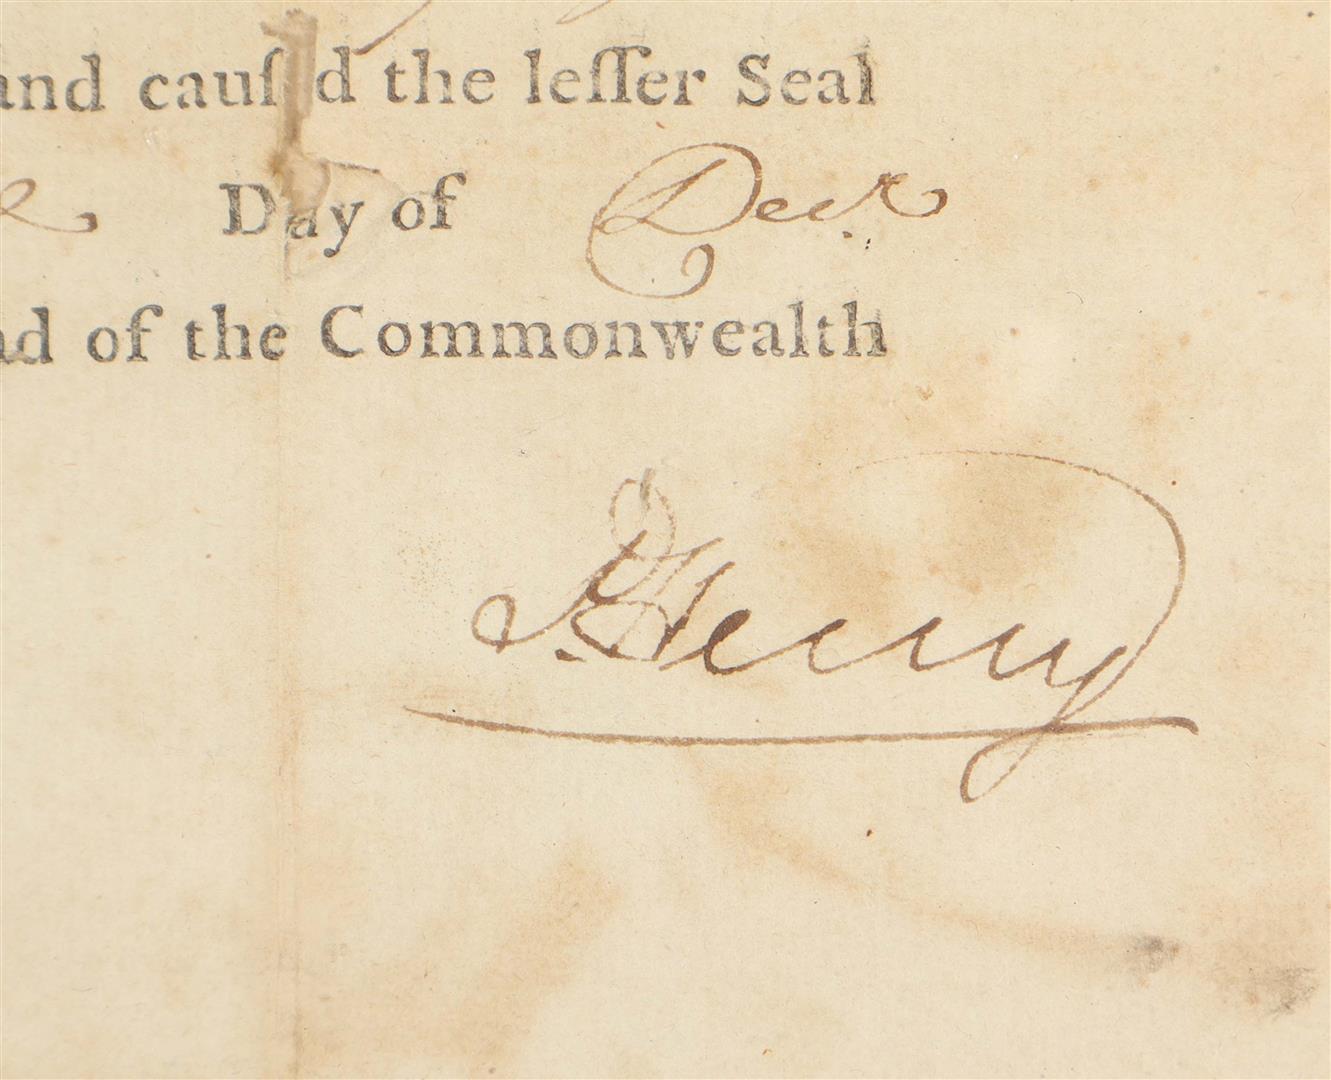 and cauſed the leſſer Seal
Day of Decr.
of the Commonwealth
P. Henry